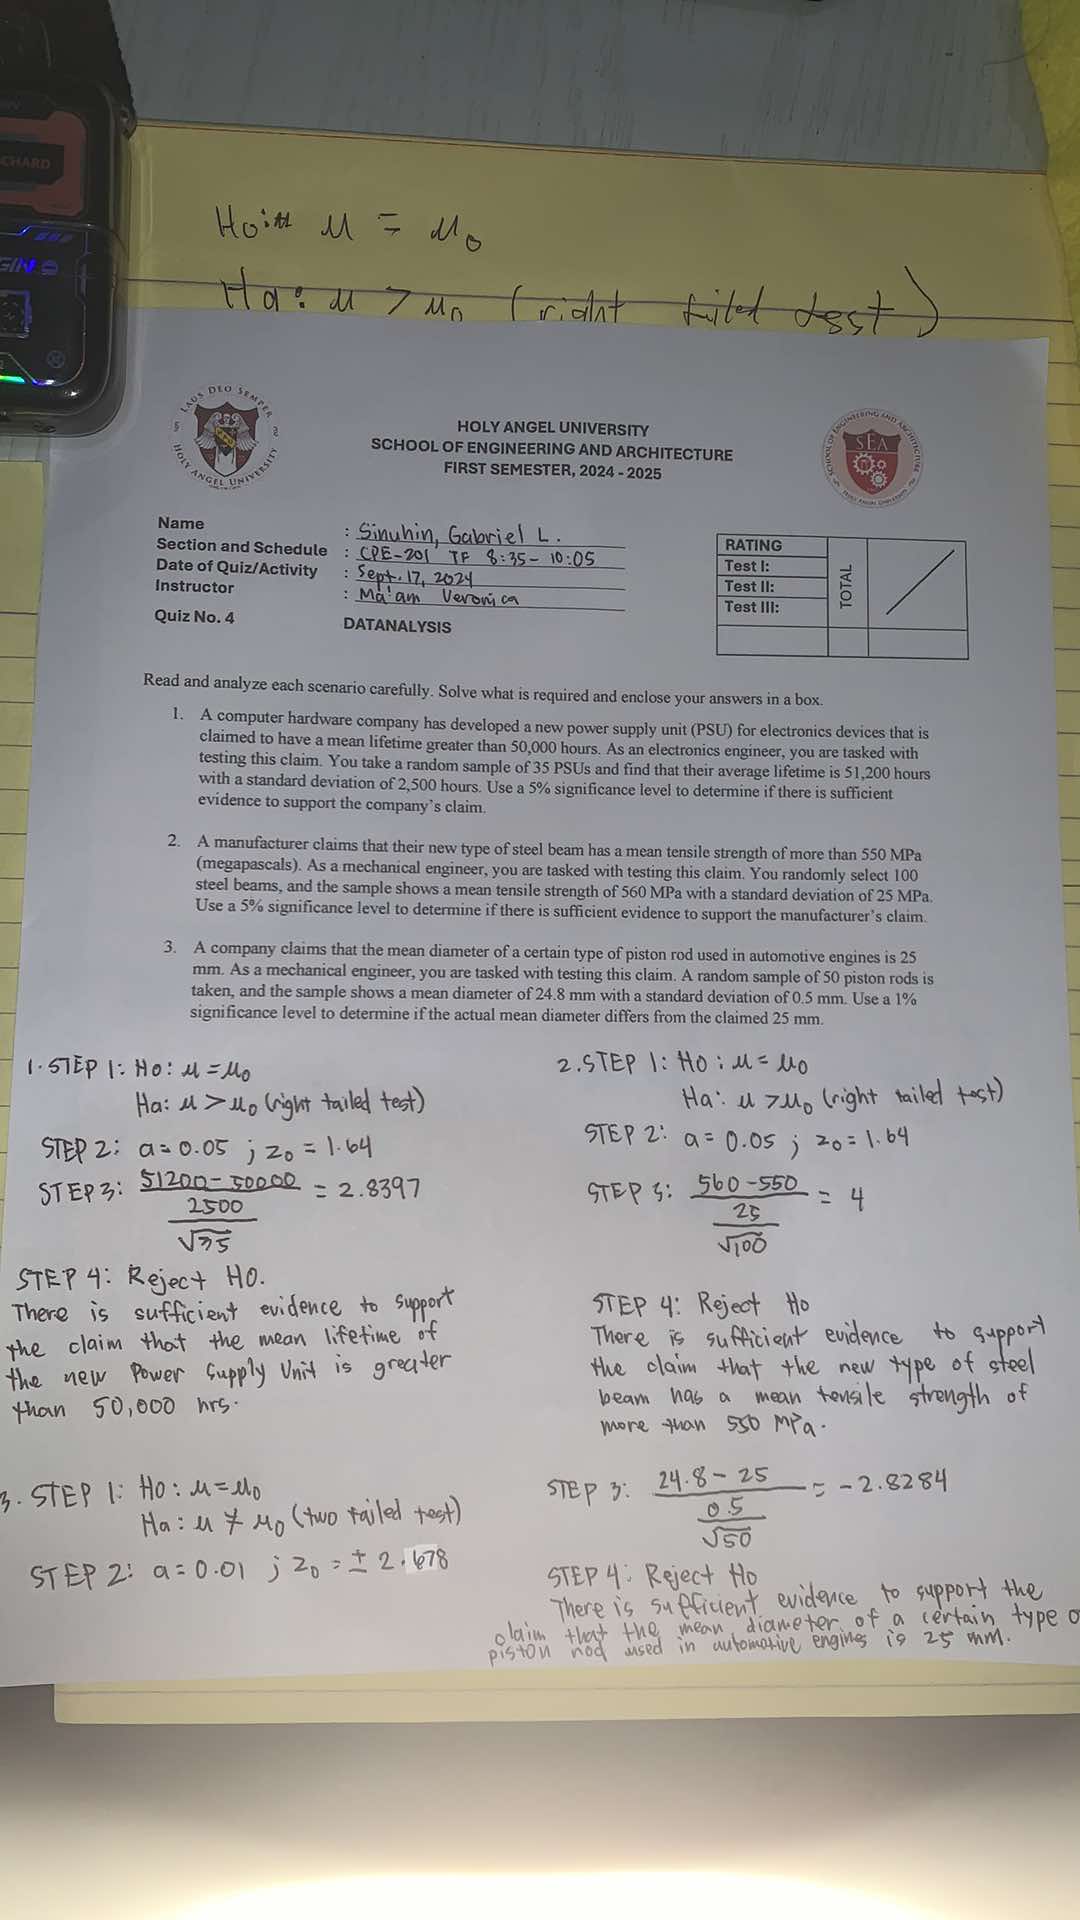 CHARD
Ho: μ = μ₀
Ha: μ > μ₀ (right tiled test)
LAUS DEO SEMPER
HOLY ANGEL UNIVERSITY
HOLY ANGEL UNIVERSITY
SCHOOL OF ENGINEERING AND ARCHITECTURE
FIRST SEMESTER, 2024 - 2025
SCHOOL OF ENGINEERING AND ARCHITECTURE
SEA
HOLY ANGEL UNIVERSITY
Name : Sinuhin, Gabriel L.
Section and Schedule : CPE-201 TF 8:35- 10:05
Date of Quiz/Activity : Sept. 17, 2024
Instructor : Ma'am Veronica
Quiz No. 4 DATANALYSIS
RATING
Test I:
Test II:
Test III:
TOTAL
Read and analyze each scenario carefully. Solve what is required and enclose your answers in a box.
1. A computer hardware company has developed a new power supply unit (PSU) for electronics devices that is
claimed to have a mean lifetime greater than 50,000 hours. As an electronics engineer, you are tasked with
testing this claim. You take a random sample of 35 PSUs and find that their average lifetime is 51,200 hours
with a standard deviation of 2,500 hours. Use a 5% significance level to determine if there is sufficient
evidence to support the company's claim.
2. A manufacturer claims that their new type of steel beam has a mean tensile strength of more than 550 MPa
(megapascals). As a mechanical engineer, you are tasked with testing this claim. You randomly select 100
steel beams, and the sample shows a mean tensile strength of 560 MPa with a standard deviation of 25 MPa.
Use a 5% significance level to determine if there is sufficient evidence to support the manufacturer's claim.
3. A company claims that the mean diameter of a certain type of piston rod used in automotive engines is 25
mm. As a mechanical engineer, you are tasked with testing this claim. A random sample of 50 piston rods is
taken, and the sample shows a mean diameter of 24.8 mm with a standard deviation of 0.5 mm. Use a 1%
significance level to determine if the actual mean diameter differs from the claimed 25 mm.
1. STEP 1: Ho: μ = μ₀
Ha: μ > μ₀ (right tailed test)
STEP 2: a = 0.05 ; z₀ = 1.64
STEP 3: 51200 - 50000 = 2.8397
2500
√35
STEP 4: Reject HO.
There is sufficient evidence to support
the claim that the mean lifetime of
the new Power Supply Unit is greater
than 50,000 hrs.
2. STEP 1: HO: μ = μ₀
Ha: μ > μ₀ (right tailed test)
STEP 2: a = 0.05 ; z₀ = 1.64
STEP 3: 560 - 550 = 4
25
√100
STEP 4: Reject Ho
There is sufficient evidence to support
the claim that the new type of steel
beam has a mean tensile strength of
more than 550 MPa.
3. STEP 1: HO: μ = μ₀
Ha: μ ≠ μ₀ (two tailed test)
STEP 2: a = 0.01 ; z₀ = ± 2.678
STEP 3: 24.8 - 25 = -2.8284
0.5
√50
STEP 4: Reject Ho
There is sufficient evidence to support the
claim that the mean diameter of a certain type o
piston rod used in automotive engines is 25 mm.